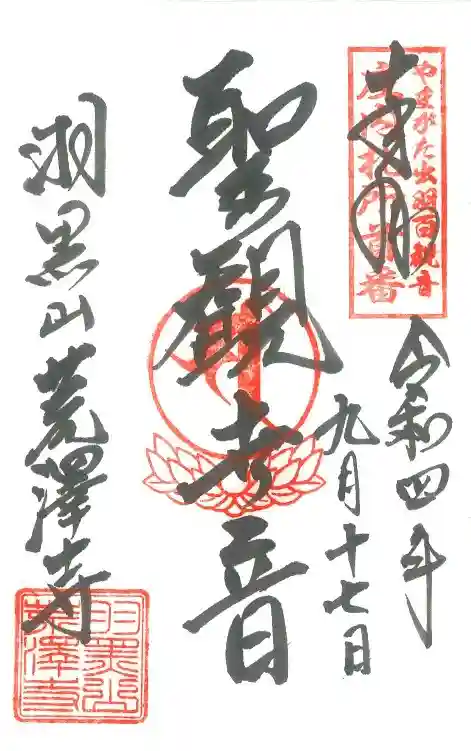 奉拝
やまがた出羽百観音
庄内札所首番
令和四年
九月十七日
聖觀世音
羽黒山荒澤寺
羽黒山
荒澤寺